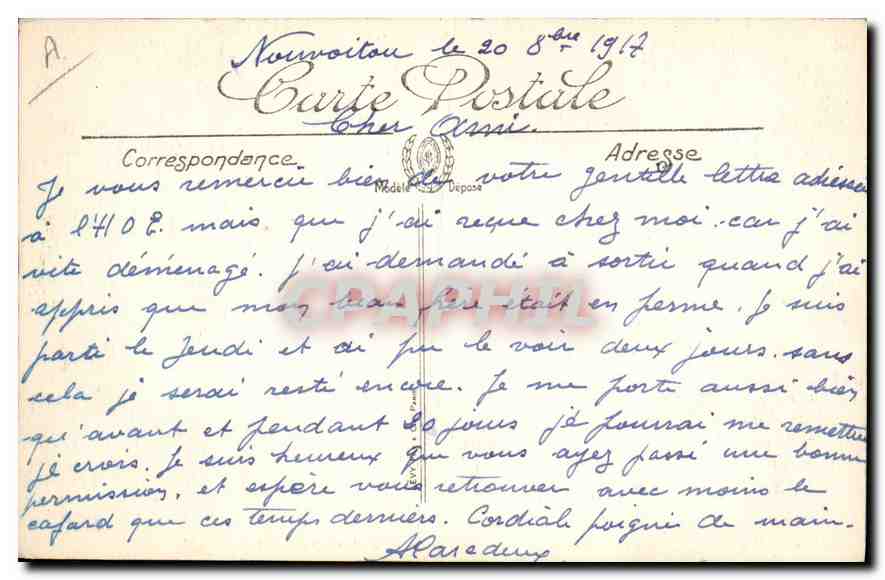 A
Nouvoitou le 20 8bre 1917
Carte Postale
Cher Ami.
Correspondance
Adresse
Modèle Déposé
Je vous remercie bien de votre gentille lettre adressée
à l'HOE. mais que j'ai reçue chez moi. car j'ai
vite déménagé. J'ai demandé à sortir quand j'ai
appris que mon beau frère était en perme. Je suis
parti le Jeudi et ai pu le voir deux jours. sans
cela je serai resté encore. Je me porte aussi bien
qu'avant et pendant 20 jours je pourrai me remettre
je crois. Je suis heureux que vous ayez passé une bonne
permission, et espère vous retrouver avec moins le
cafard que ces temps derniers. Cordiale poignée de main.
CPAPHIL